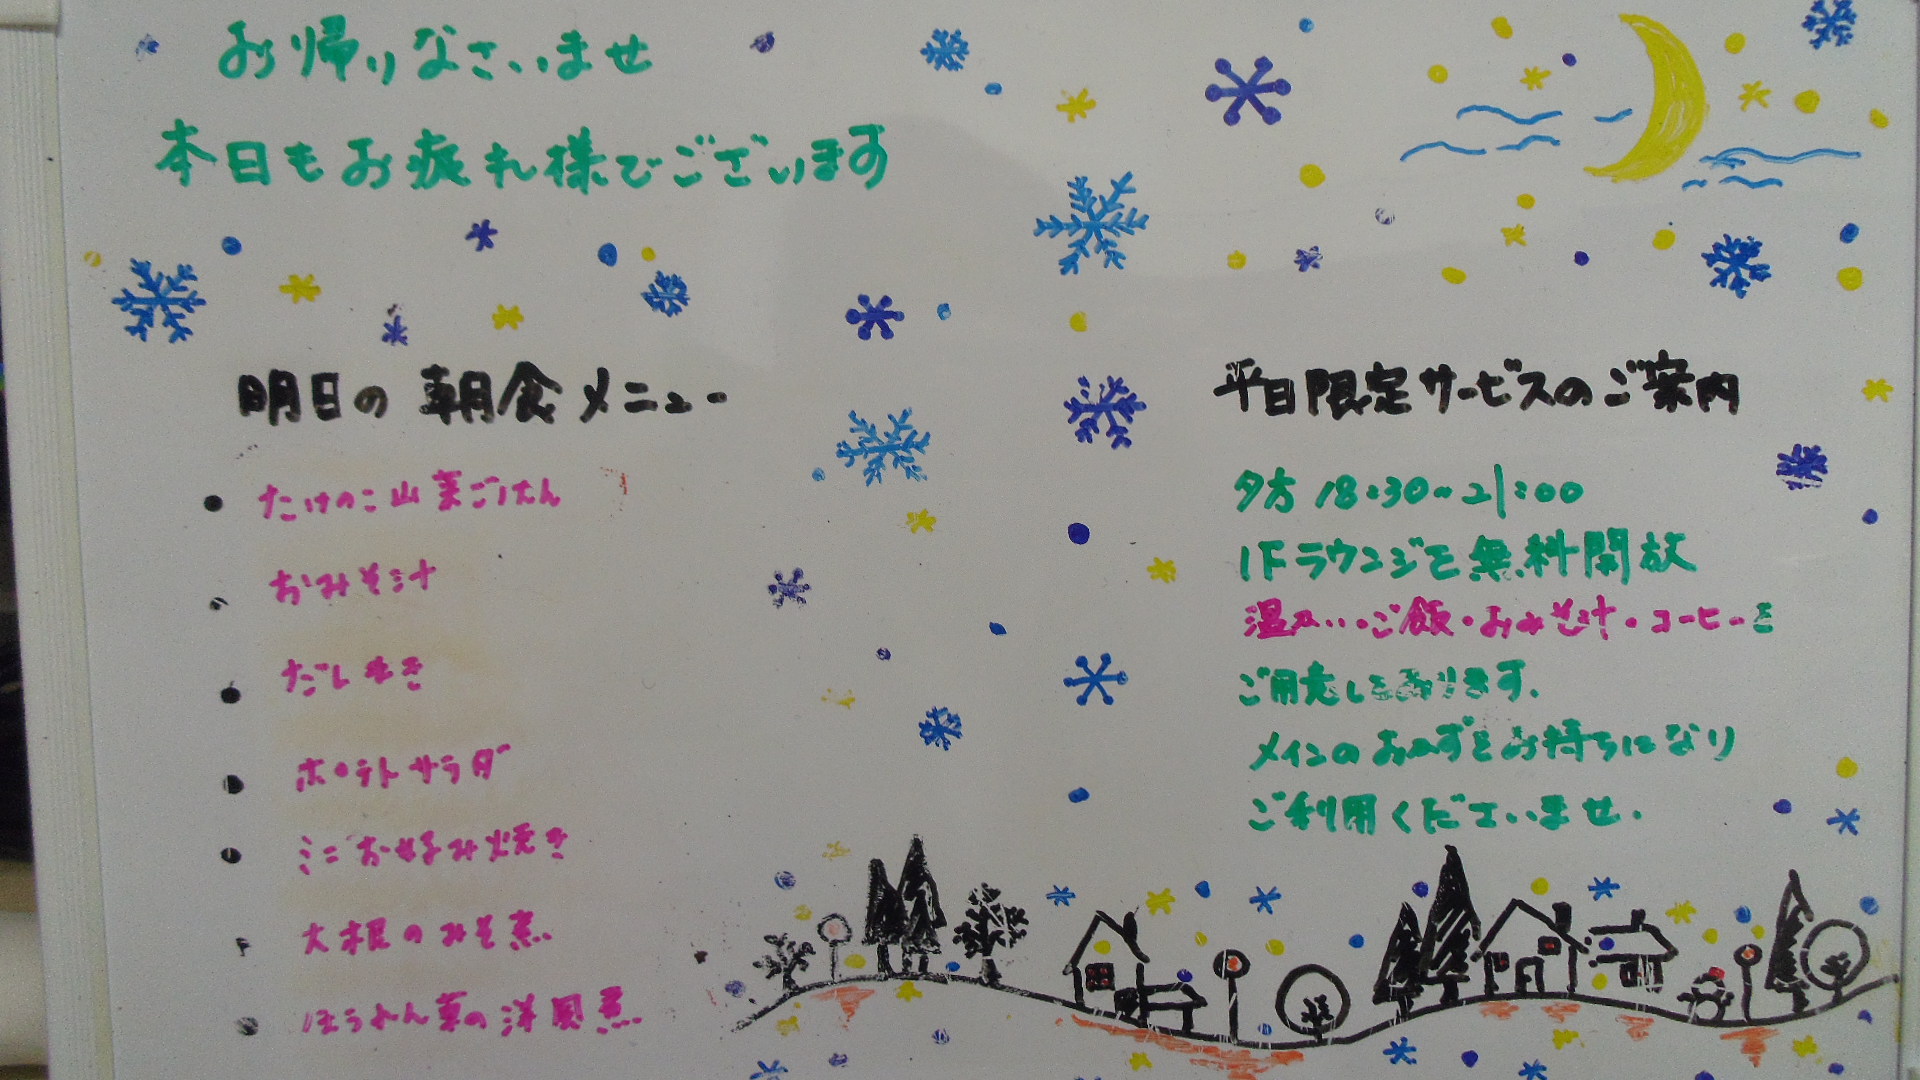 お帰りなさいませ
本日もお疲れ様でございます
明日の朝食メニュー
・たけのこ山菜ごはん
・おみそ汁
・だしまき
・ポテトサラダ
・ミニお好み焼き
・大根のみそ煮
・ほうれん草の洋風煮
平日限定サービスのご案内
夕方 18:30~21:00
1Fラウンジを無料開放
温かい・ご飯・おみそ汁・コーヒーを
ご用意しております。
メインのおかずをお持ちになり
ご利用くださいませ.